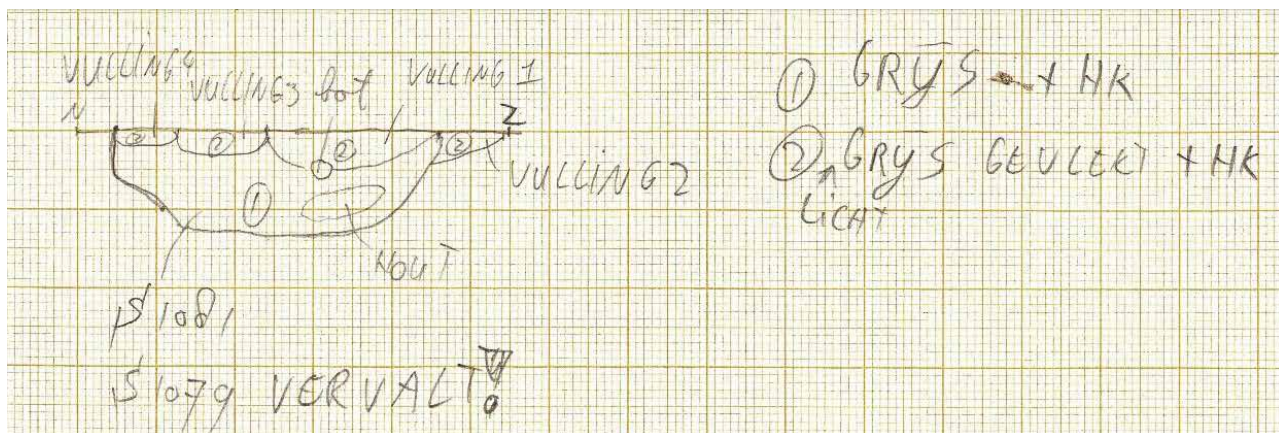 VULLING 4 VULLING 3 bot VULLING 1
N Z
② ② ② ②
VULLING 2
①
HOUT
S 1081
S 1079 VERVALT!
① GRYS + HK
② GRYS GEVLEKT + HK
LICHT